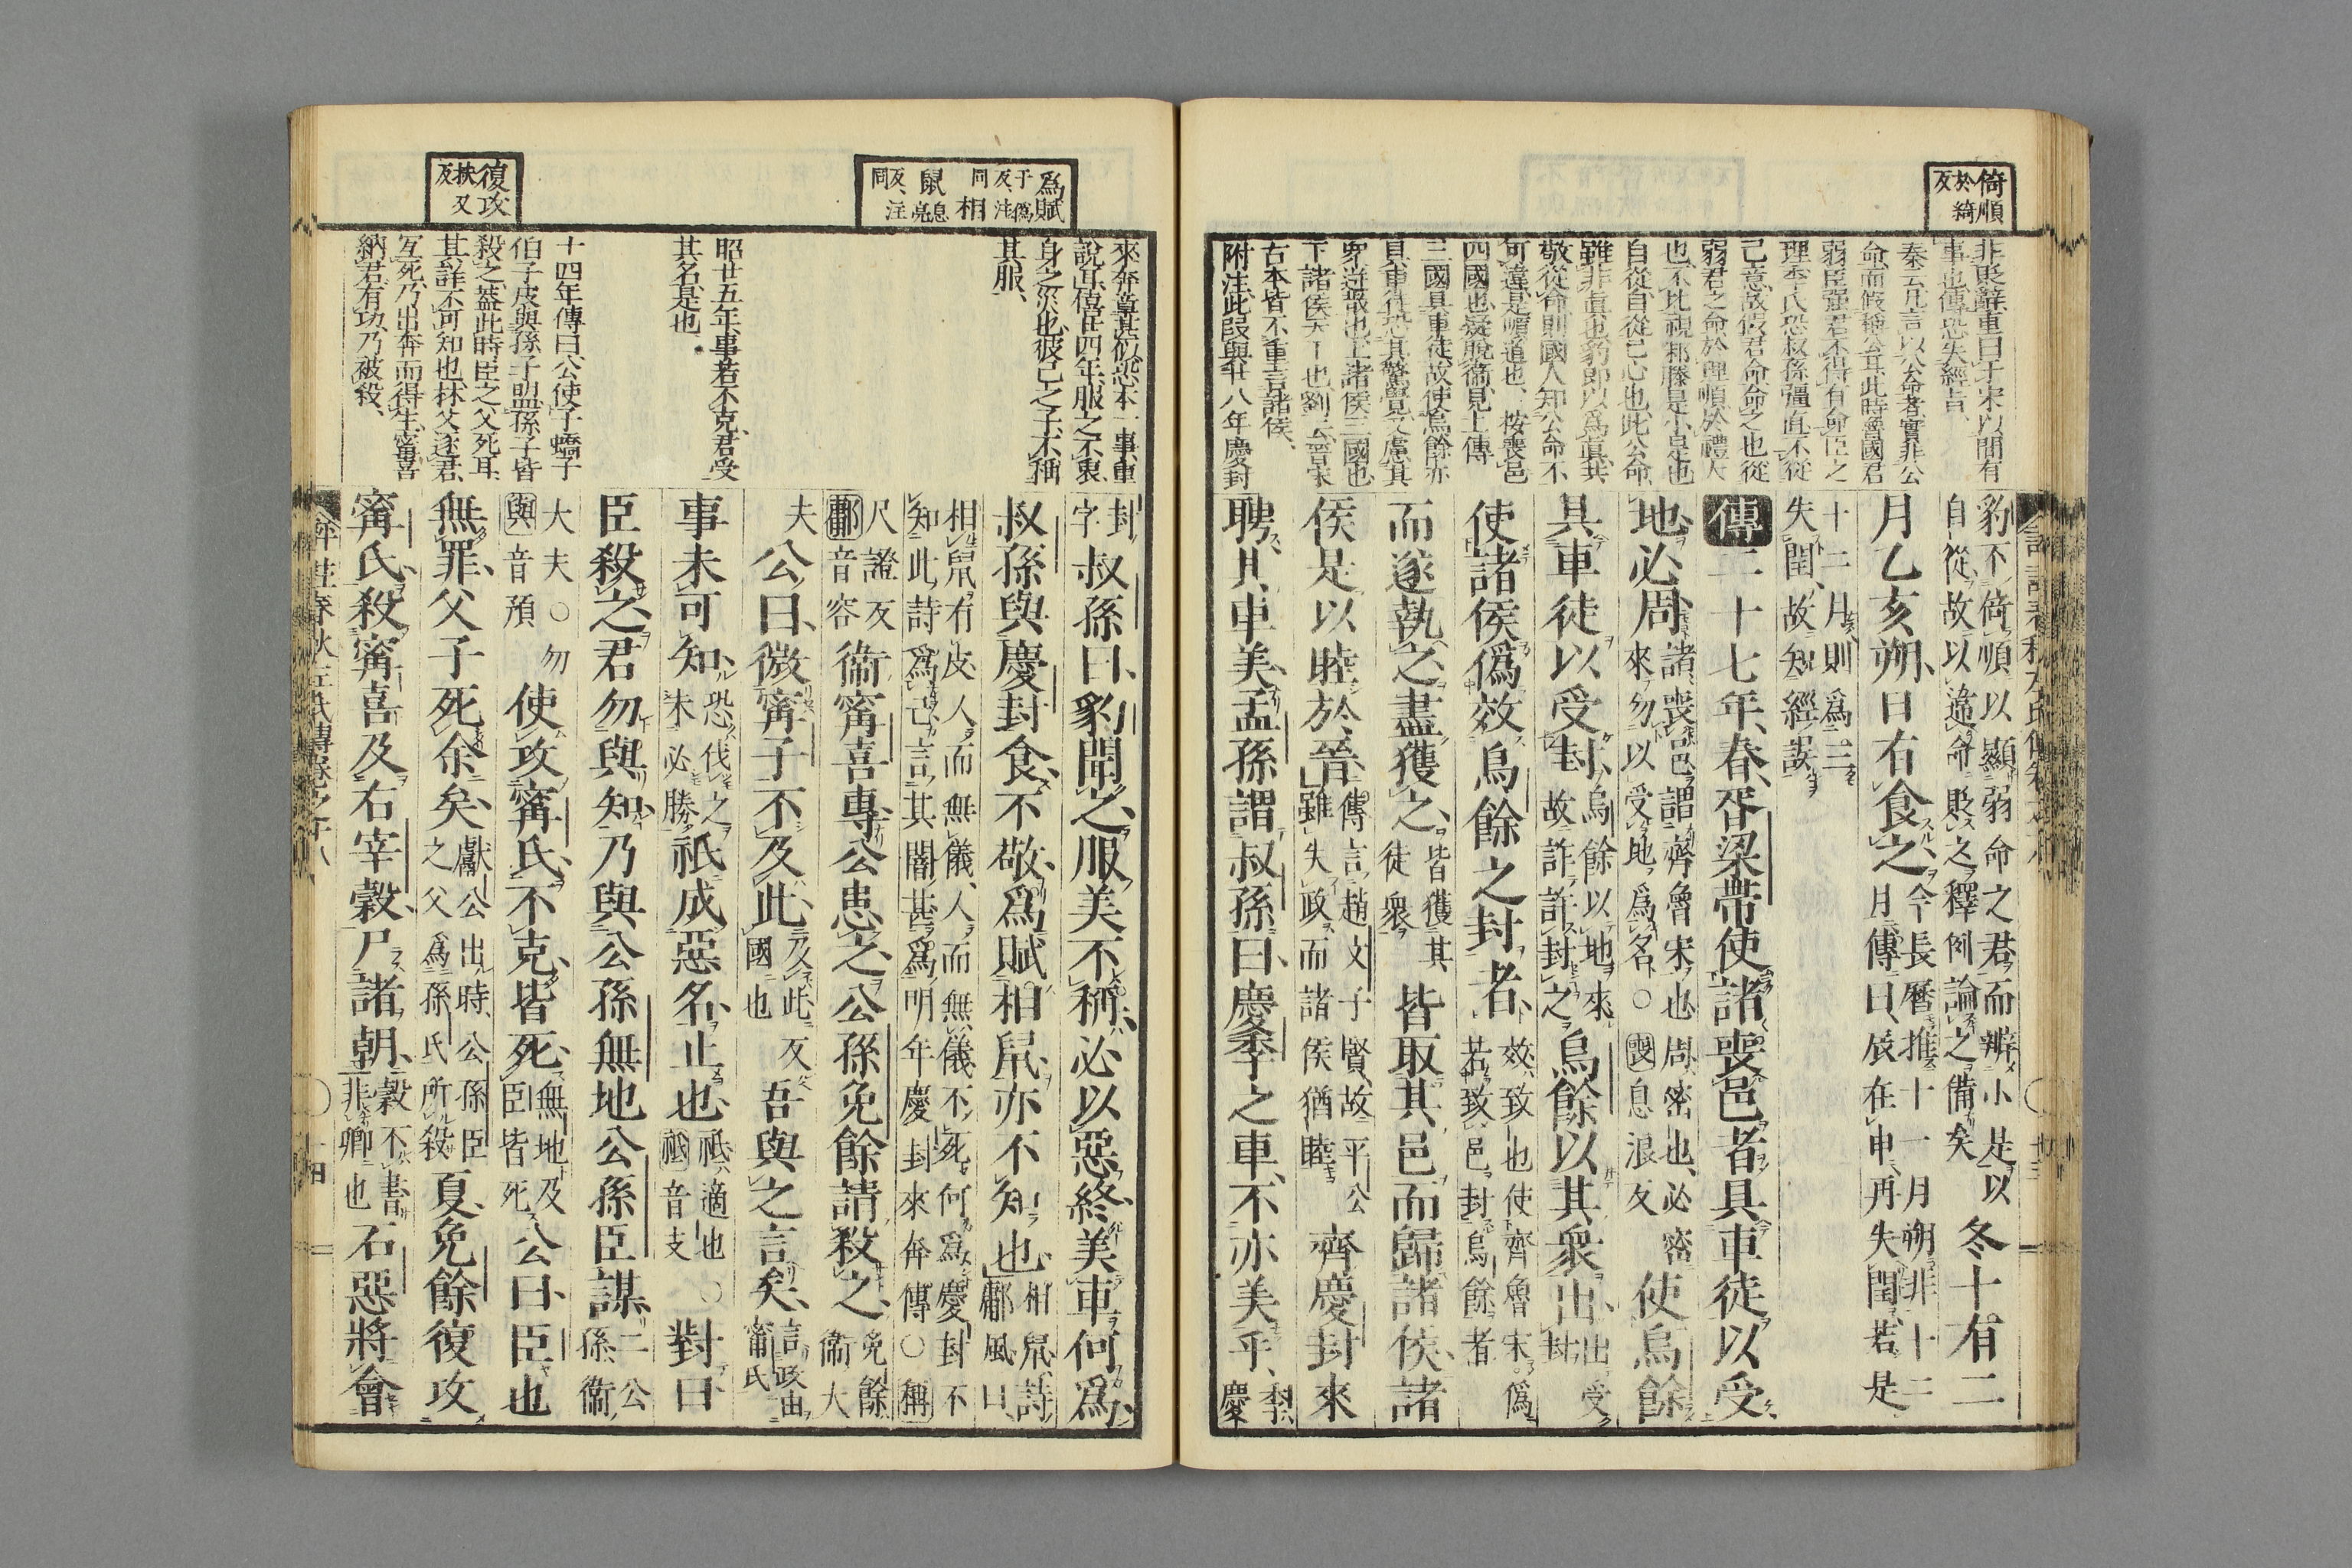 倚順
於綺
反
非貶辭重曰于宋以間有
事也傳恐失經旨
秦云凡言以公命者實非公
命而假稱公耳此時魯國君
弱臣强君不得有命臣之
理季氏恐叔孫彊直不從
己意故假君命命之也從
弱君之命於理順於禮大
也不比視邾滕是小是也
自從自從己心也此公命
雖非眞也豹即以爲眞共
敬從命則國人知公命不
可違是㫖道也按喪邑
四國也疑脫衞見上傳
三國具車徒故使烏餘亦
具車徒恐其驚覺又慮其
下諸侯大一也劉云晉宋
古本皆不重言諸侯
附注此段與廿八年慶封
豹不倚順以顯弱命之君而辨小是以
自從故以違命貶之釋例論之備矣
冬十有二
月乙亥朔日有食之
今長曆推十一月朔非十二
月傳曰辰在申再失閏若是
十二月則爲三
失閏故知經誤
傳二十七年春胥梁帶使諸喪邑者具車徒以受
地必周
諸喪邑謂齊魯宋也周密也必密
來勿以受地爲名○喪息浪反
使烏餘
其車徒以受封
烏餘以地來
故詐許封之
烏餘以其衆出
出受
封
使諸侯僞效烏餘之封者
效致也使齊魯宋僞
若致邑封烏餘者
而遂執之盡獲之
皆獲其
徒衆
皆取其邑而歸諸侯諸
侯是以睦於晉
傳言趙文子賢故平公
雖失政而諸侯猶睦
齊慶封來
聘其車美孟孫謂叔孫曰慶季之車不亦美乎
季
慶
爲賦
于僞
反注
同
相
鼠
息亮
反注
同
復攻
扶又
反
來奔章甚似恐本一事重
說耳僖廿四年服之不衷
身之災也彼己之子不稱
其服
昭廿五年事若不克君受
其名是也
十四年傳曰公使子蟜子
伯子皮與孫子盟孫子皆
殺之蓋此時臣之父死耳
其詳不可知也林父逐君
互死乃出奔而得生甯喜
納君有功乃被殺
封
字
叔孫曰豹聞之服美不稱必以惡終美車何爲
叔孫與慶封食不敬爲賦相鼠亦不知也
相鼠詩
鄘風曰
相鼠有皮人而無儀人而無儀不死何爲慶封不
知此詩爲己言其闇甚爲明年慶封來奔傳○稱
尺證反
鄘音容
衞甯喜專公患之公孫免餘請殺之
免餘
衞大
夫
公曰微甯子不及此
及此反
國也
吾與之言矣
言政由
甯氏
事未可知
恐伐之
未必勝
祇成惡名止也
祇適也
祇音支
○
對曰
臣殺之君勿與知乃與公孫無地公孫臣謀
二公
孫衞
大夫○勿
與音預
使攻甯氏不克皆死
無地及
臣皆死
公曰臣也
無罪父子死余矣
獻公出時公孫臣
之父爲孫氏所殺
夏免餘復攻
甯氏殺甯喜及右宰穀尸諸朝
穀不書
非卿也
石惡將會